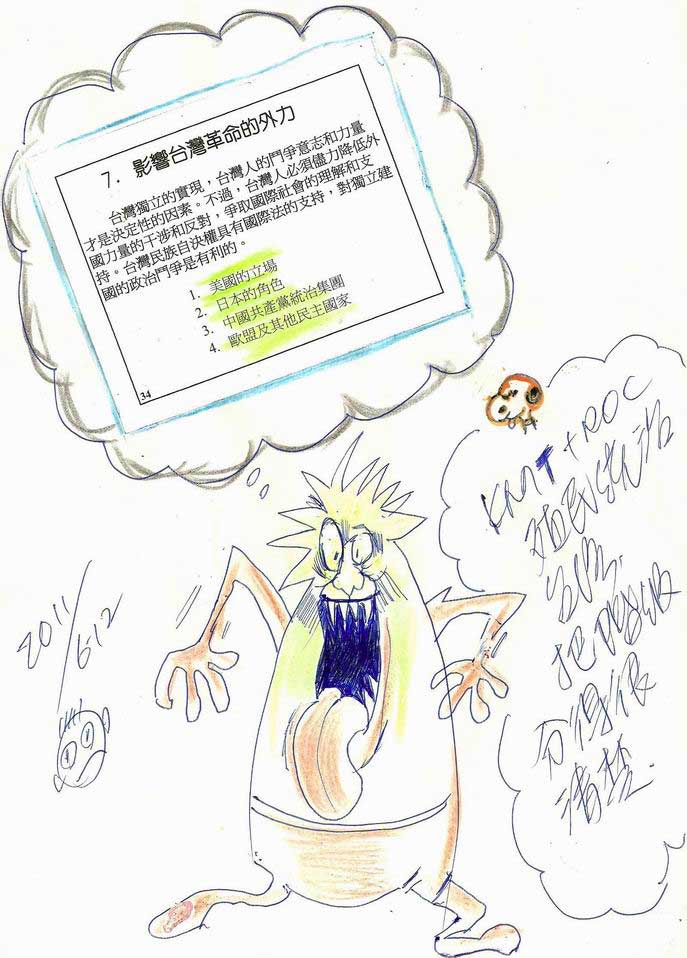 7. 影響台灣革命的外力
台灣獨立的實現，台灣人的鬥爭意志和力量
才是決定性的因素。不過，台灣人必須儘力降低外
國力量的干涉和反對，爭取國際社會的理解和支
持。台灣民族自決權具有國際法的支持，對獨立建
國的政治鬥爭是有利的。
1. 美國的立場
2. 日本的角色
3. 中國共產黨統治集團
4. 歐盟及其他民主國家
34
KMT+ROC
殖民統治
台灣.
把階級
分得很
清楚.
2011/6.12